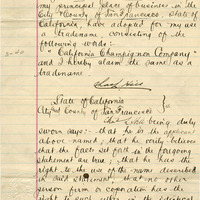 my principal place of business in the
City & County of San Francisco, State of
California, have adopted for my use
a tradename, consisting of the
following words:-
"California Champignon Company"
and I hereby claim the same as a
tradename
State of California
City & County of San Francisco
being duly
sworn says:- that he is the applicant
above named, that he verily believes
that the facts set out in the foregoing
statement are true, that he has the
right to the use of the name described
in said statement, that no other
person firm or coporation has the
right to such use in the